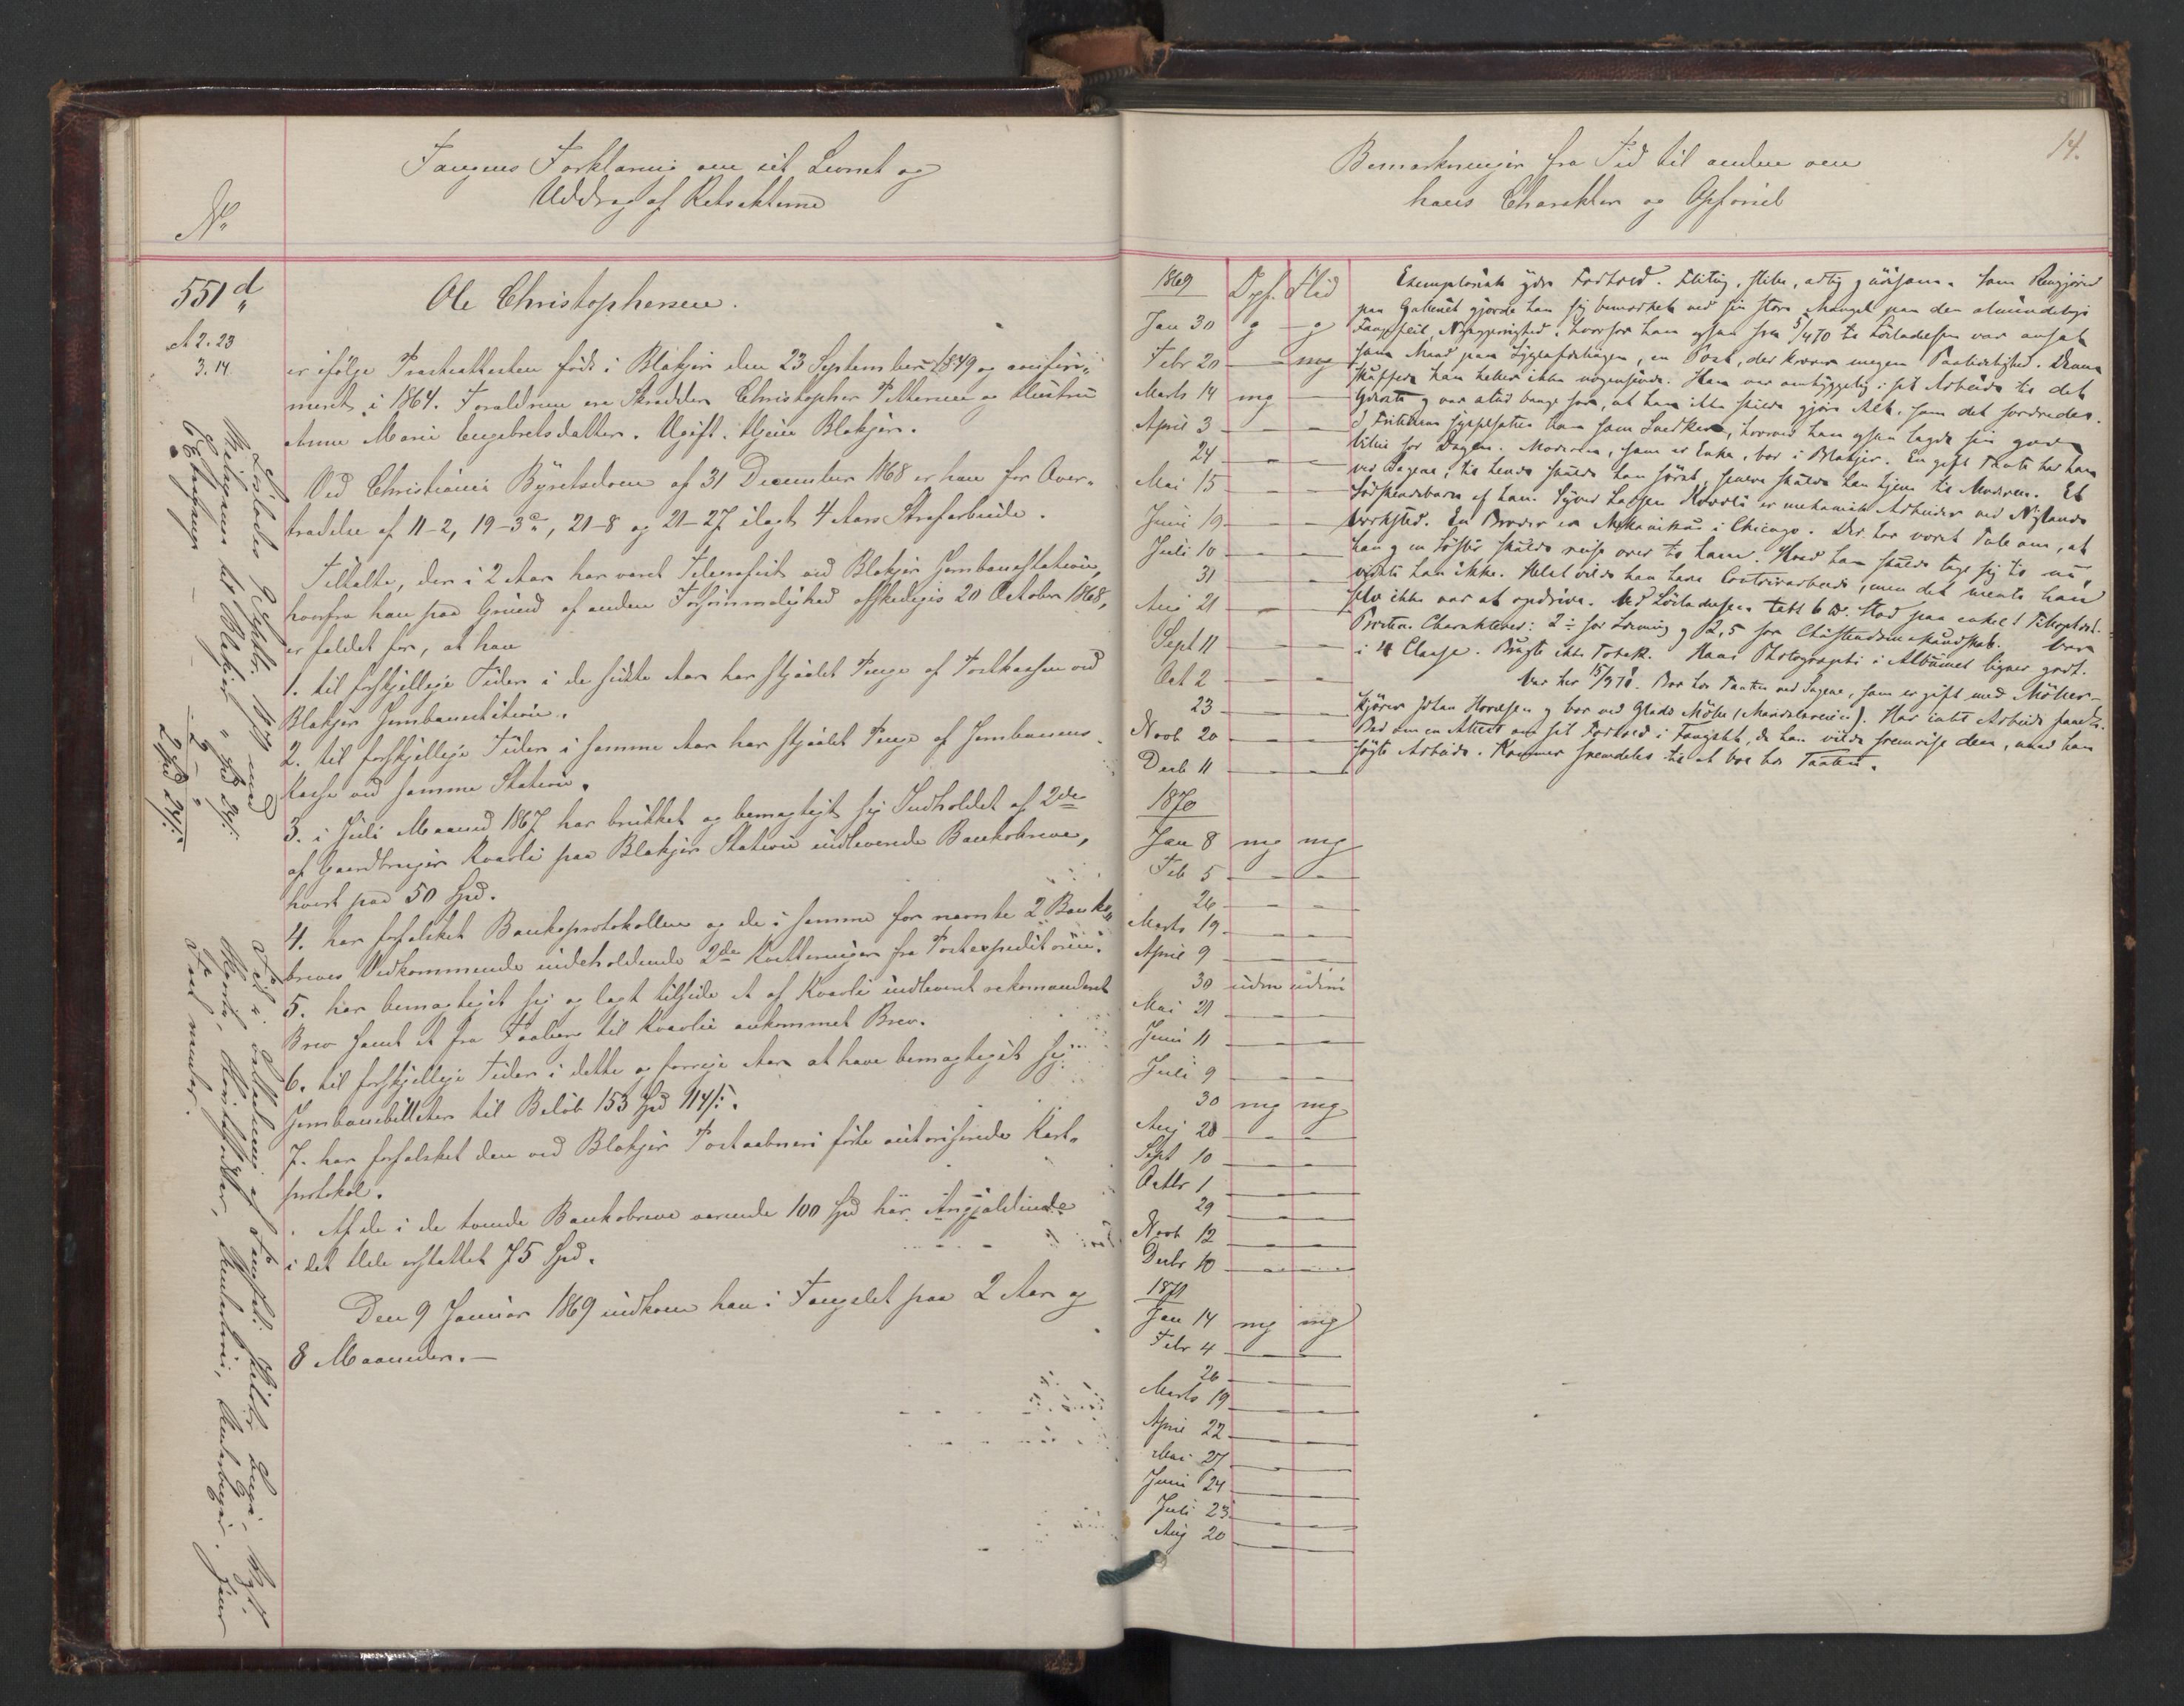 Fangens Forklaring om sit Levnet og
Uddrag af Retsakterne
No
551 d
A 2. 23
3. 14
Ole Christophersen.
er ifølge Præsteattesten født i Blakjer den 23 September 1849 og confir-
meret i 1864. Forældrene ere Skrædder Christopher Pettersen og Hustru
Anne Marie Engebretsdatter. Ugift. Hjem Blakjer.
Ved Christiania Byretsdom af 31 December 1868 er han for Over-
trædelse af 11-2, 19-3 c, 21-8 og 21-27 ilagt 4 Aars Strafarbeide.
Tiltalte, der i 2 Aar har været Telegrafist ved Blakjer Jernbanestation,
hvorfra han paa Grund af anden Forsømmelighed afskedigedes 20 October 1868,
er fældet for, at han
1. til forskjellige Tider i de sidste Aar har stjaalet Penge af Postkassen ved
Blakjer Jernbanestation.
2. til forskjellige Tider i samme Aar har stjaalet Penge af Jernbanens
Kasse ved samme Station.
3. i Juli Maaned 1867 har brukket og bemægtiget sig Indholdet af 2de
af Gaardbruger Kvavli paa Blakjer Station indleverede Bankobreve,
hvert paa 50 Spd.
4. har forfalsket Bankoprotokollen og de i samme for nævnte 2 Banko-
breves Vedkommende indeholdende 2de Kvitteringer fra Postexpeditionen.
5. har bemægtiget sig og lagt tilside et af Kvavli indleveret rekommanderet
Brev samt et fra til Kvavli ankommet Brev.
6. til forskjellige Tider i dette og forrige Aar at have bemægtiget sig
Jernbanebilletter til Beløb 153 Spd 114 s.
7. har forfalsket den ved Blakjer Postaabneri førte autoriserede Kart-
protokol.
Af de i de tvende Bankobreve værende 100 Spd har Angjældende
i det Hele erstattet 75 Spd.
Den 9 Januar 1869 indkom han i Fængslet paa 2 Aar og
8 Maaneder.-
Løslades 9 Septbr. 1871 med
til Blakjer " Spd 24 s:
6 2 - "
2 Spd 24 s:
Bemærkninger fra Tid til anden om
hans Charakter og Opførsel
14.
1869 Opf. Flid
Jan 30 g - g
Febr 20 — mg
Marts 14 mg —
April 3 — —
24 — —
Mai 15 — —
Juni 19 — —
Juli 10 — —
31 — —
Aug 21 — —
Sept 11 — —
Oct 2 — —
23 — —
Novb 20 — —
Decb 11 — —
1870
Jan 8 mg mg
Feb 5 — —
26 — —
Marts 19 — —
April 9 — —
30 udm udm
Mai 21 — —
Juni 11 — —
Juli 9 — —
30 mg mg
Aug 20 — —
Sept 10 — —
Octbr 1 — —
29 — —
Novb 12 — —
Decbr 10 — —
1871
Jan 14 mg mg
Febr 4 — —
26 — —
Marts 19 — —
April 22 — —
Mai 27 — —
Juni 24 — —
Juli 23 — —
Aug 20 — —
Exemplarisk ydre Forhold. Flittig, stille, artig g. Som Rengjører
paa Galleriet gjorde han sig bemærket ved sin store Mangel paa den almindelige
Fangefeil, Nysgjerrighed, hvorfor han ogsaa fra 5/4 70 til Løsladelsen var ansat
som Mand paa Sygeafdelingen, en Post, der kræver megen Paalidelighed. Denne
skuffede han heller ikke nogensinde. Han var omhyggelig i sit Arbeide til det
Yderste og var altid bange for, at han ikke skulde gjøre Alt, som det fordredes.
I Fritiden sysselsatte han som Snedker, hvorved han ogsaa lagde sin gode
Villie for Dagen. Moderen, som er Enke, bor i Blakjer. En gift Tante har han
ved Sagene; til hende skulde han først, senere skulde han hjem til Moderen. Et
Sødskendebarn af ham Syver Larsen er mekanisk Arbeider ved Nylands
Værksted. En Broder er Mekanikus i Chicago. Der har været Tale om, at
han og en Søster skulde reise over til ham. Hvad han skulde tage sig til nu,
vidste han ikke. Helst vilde han have Contoirarbeide, men det mente han
selv ikke var at opdrive. Ved Løsladelsen tabt 6 ℔. Stod paa enkelt
Præsten Charakterer: 2 ÷ for Læsning og 2,5 for Christendomskundskab. Var
i 4 Classe. Brugte ikke Tobak. Hans Photographi i Albumet ligner godt.
Var her 15/9 71. Bor hos Tanten ved Sagene, som er gift med Møller-
kjører Johan Hovelsen og bor ved Glads Mølle (Maridalsveien). Har intet Arbeide faaet.
Bad om en Attest om sit Forhold i Fængslet, da han vilde fremvise den, naar han
søgte Arbeide. Kommer fremdeles til at bo hos Tanten.